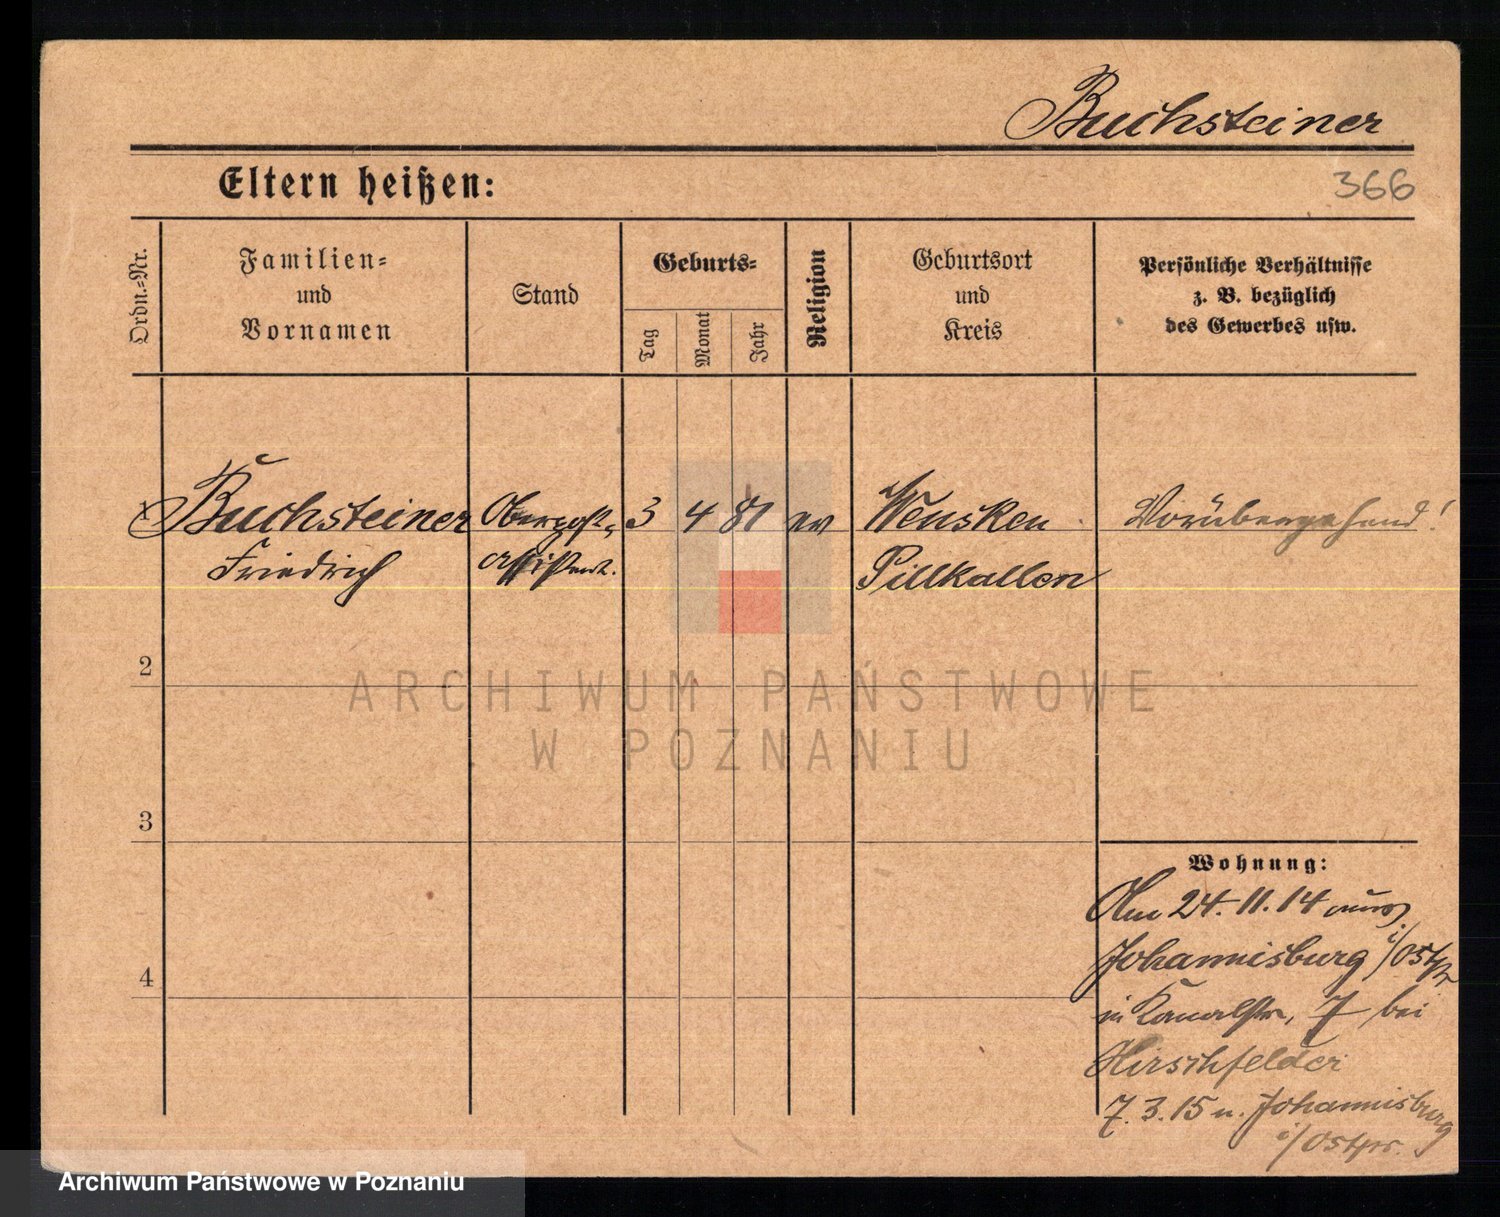 Buchsteiner
Eltern heißen:
366
Ordn.-Nr.
Familien-
und
Vornamen
Stand
Geburts-
Tag
Monat
Jahr
Religion
Geburtsort
und
Kreis
Persönliche Verhältnisse
z. B. bezüglich
des Gewerbes usw.
1
Buchsteiner
Friedrich
Oberpost-
assistent.
3
4
81
ev
Wensken
Pillkallen
Vorübergehend!
2
ARCHIWUM PAŃSTWOWE
W POZNANIU
3
4
Wohnung:
Am 24. 11. 14 aus
Johannisburg i/Ostpr
in Kanalstr. 7 bei
Hirschfelder
7. 3. 15 n. Johannisburg
i/Ostpr.
Archiwum Państwowe w Poznaniu